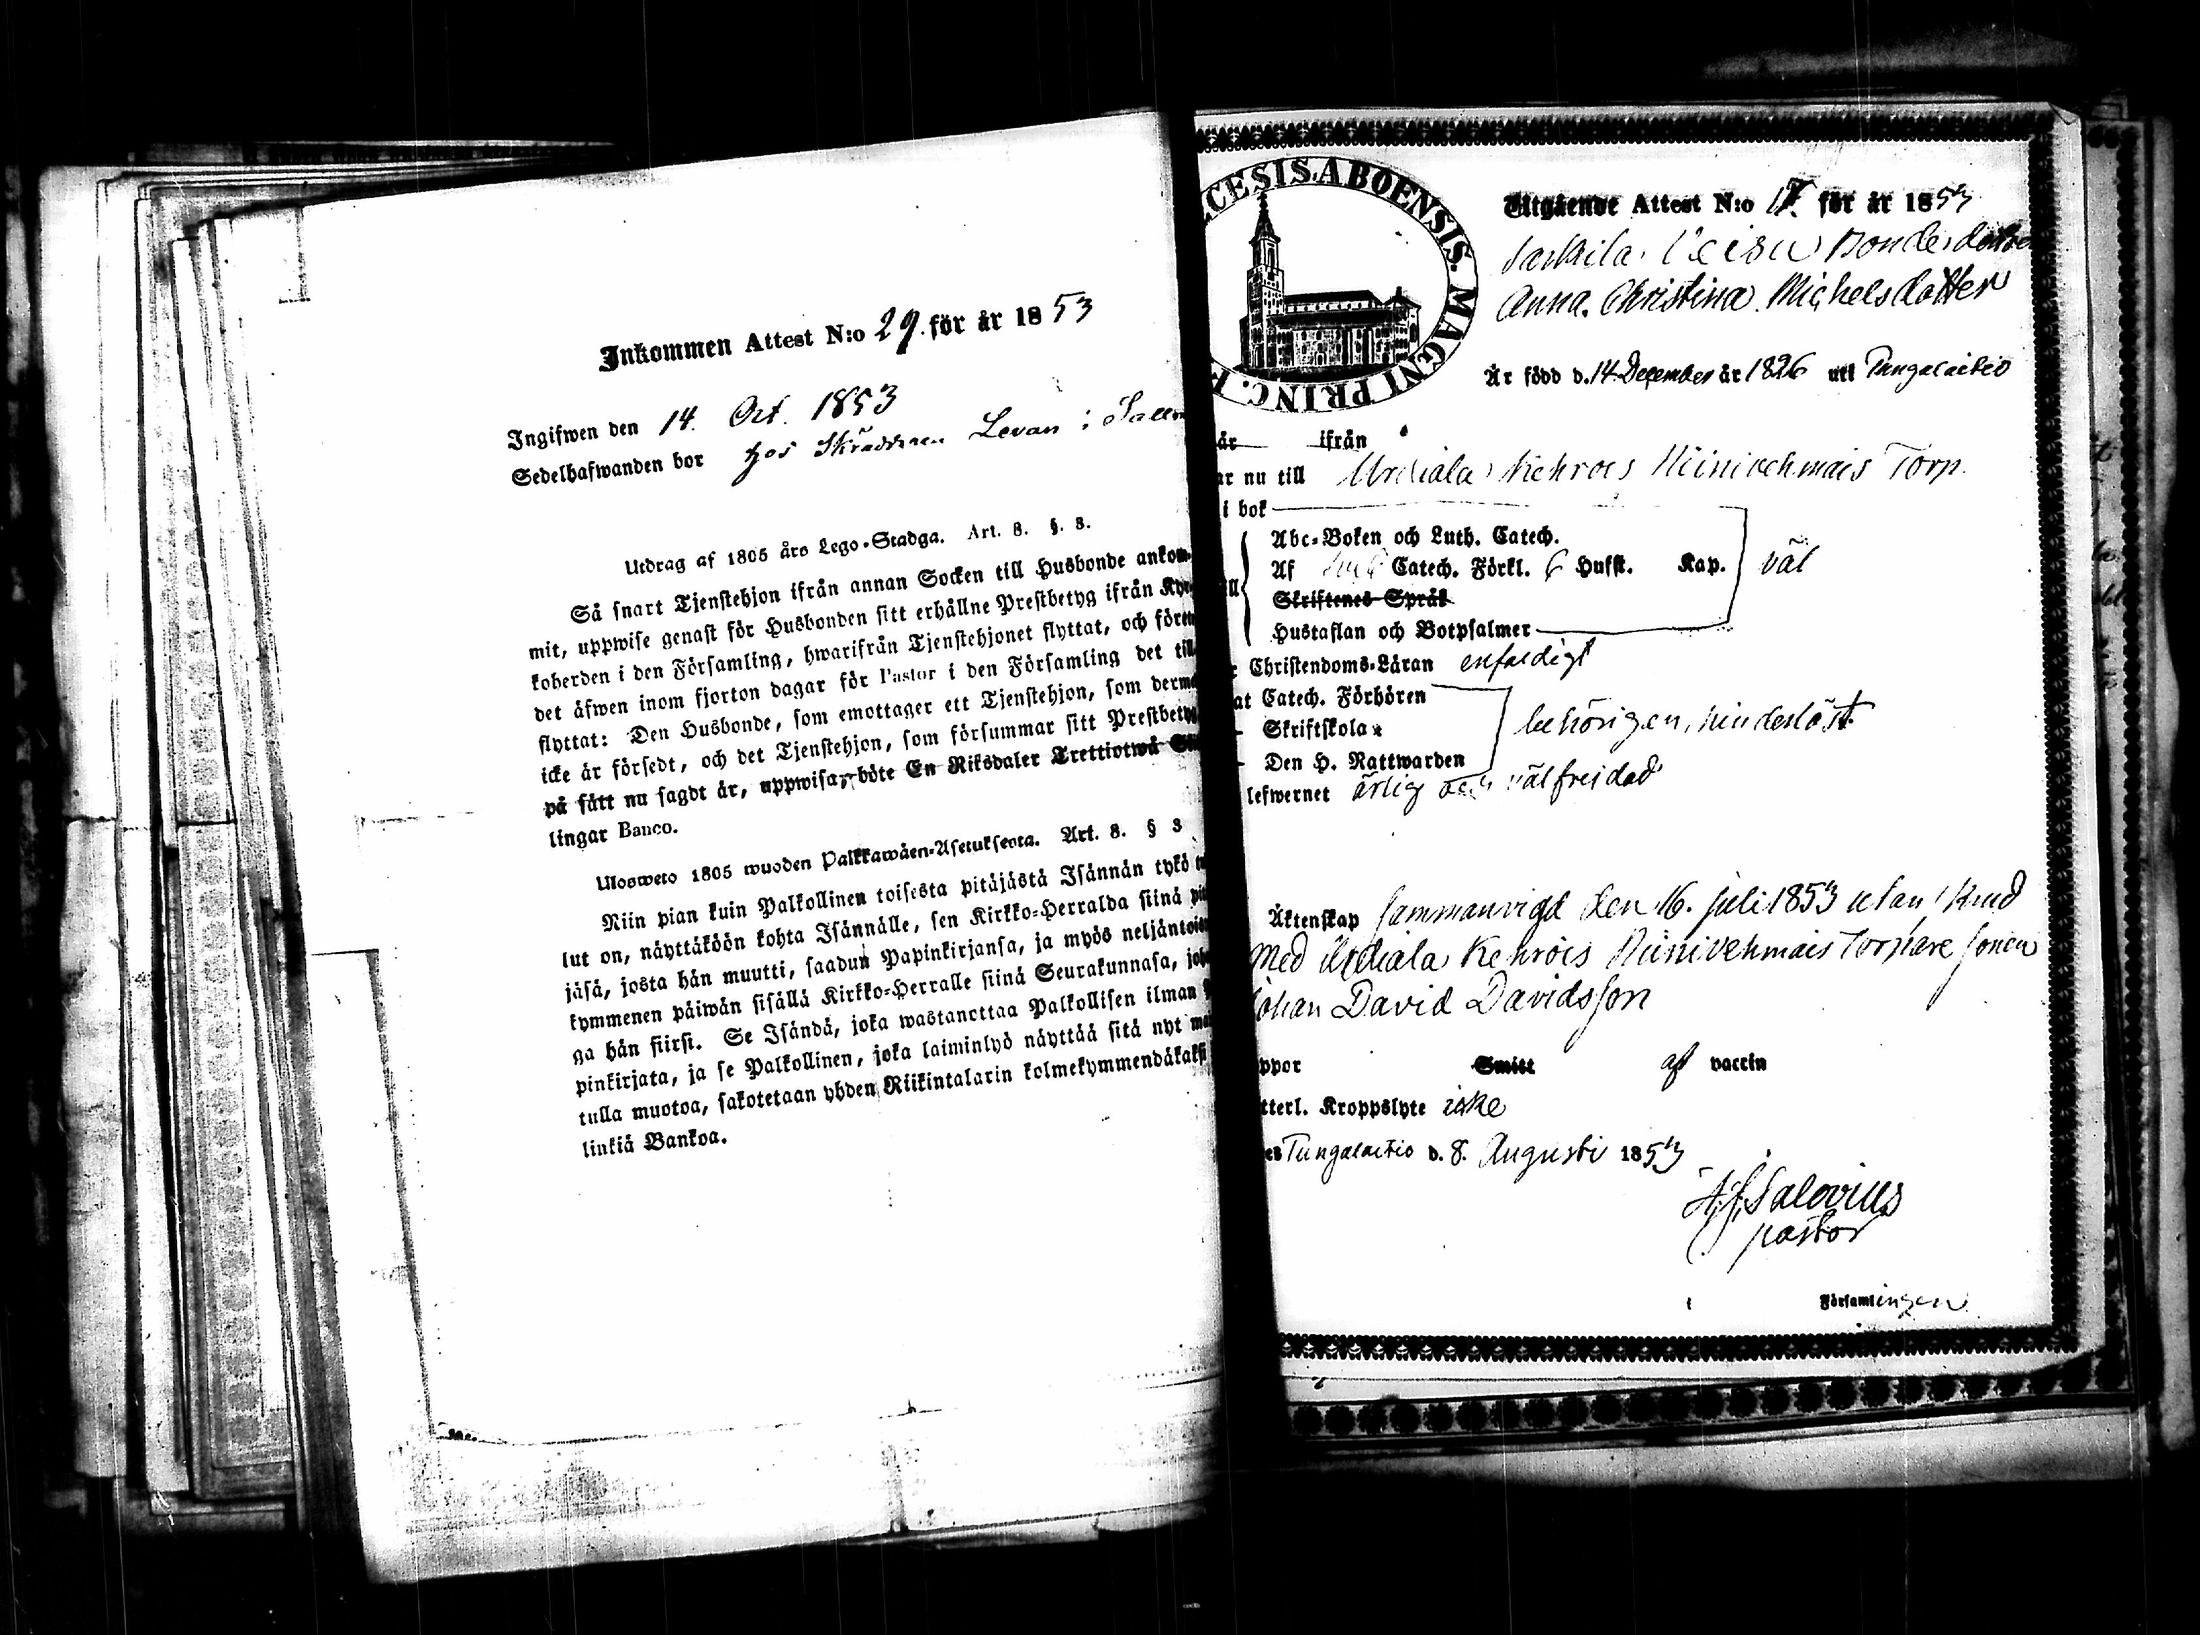 Inkommen Attest N:o 29. för år 1853
Ingifwen den 14. Oct. 1853
Sedelhafwanden bor hos Skräddaren Levan i
Utdrag af 1805 års Lego-Stadga. Art. 8. §. 3.
Så snart Tjenstehjon ifrån annan Socken till Husbonde ankom-
mit, uppwise genast för Husbonden sitt erhållne Prestbetyg ifrån
koherden i den Församling, hwarifrån Tjenstehjonet flyttat, och
det äfwen inom fjorton dagar för Pastor i den Församling det till
flyttat: Den Husbonde, som emottager ett Tjenstehjon, som
icke är försedt, och det Tjenstehjon, som försummar sitt Prestbetyg
på sätt nu sagdt är, uppwisa, böte En Riksdaler Trettiotwå
lingar Banco.
Ulosweto 1805 wuoden Palkkawäen-Asetuksesta. Art. 8. § 3
Niin pian kuin Palkollinen toisesta pitäjästä Isännän tykö
lut on, näyttäköön kohta Isännälle, sen Kirkko-Herralda siinä
jäsä, josta hän muutti, saadun Papinkirjansa, ja myös neljäntoist
kymmenen päiwän sisällä Kirkko-Herralle siinä Seurakunnasa,
ga hän siirsi. Se Isändä, joka wastanottaa Palkollisen ilman
pinkirjata, ja se Palkollinen, joka laiminlyö näyttää sitä nyt
tulla muotoa, sakotetaan yhden Riikintalarin kolmekymmendäkaksi
linkiä Bankoa.
CESIS. ABOENSIS. MAGNI PRINC. F
Utgående Attest N:o 17. för år 1853
Bondedotter
Anna Christina Michelsdotter
Är född d. 14 December år 1826 uti Pungalaitio
är ifrån
ar nu till Urdiala Kehrois Niinivehmais Torp.
i bok
Abc-Boken och Luth. Catech.
Af Catech. Förkl. 6 Hufst. Kap. väl
Skriftenes Språk
Hustaflan och Botpsalmer
Christendoms-Läran enfaldigt
at Catech. Förhören
Skriftskola behörigen, hinderlöst.
Den H. Nattwarden
lefwernet ärlig och välfrejdad
Äktenskap Sammanvigd den 16. Juli 1853 utan
med Urdiala Kehrois Niinivehmais Torpare Sonen
Johan David Davidsson
ppor Smitt af vaccin
tterl. Kroppslyte icke
es Pungalaitio d. 8. Augusti 1853
Salovius
pastor
Församlingen